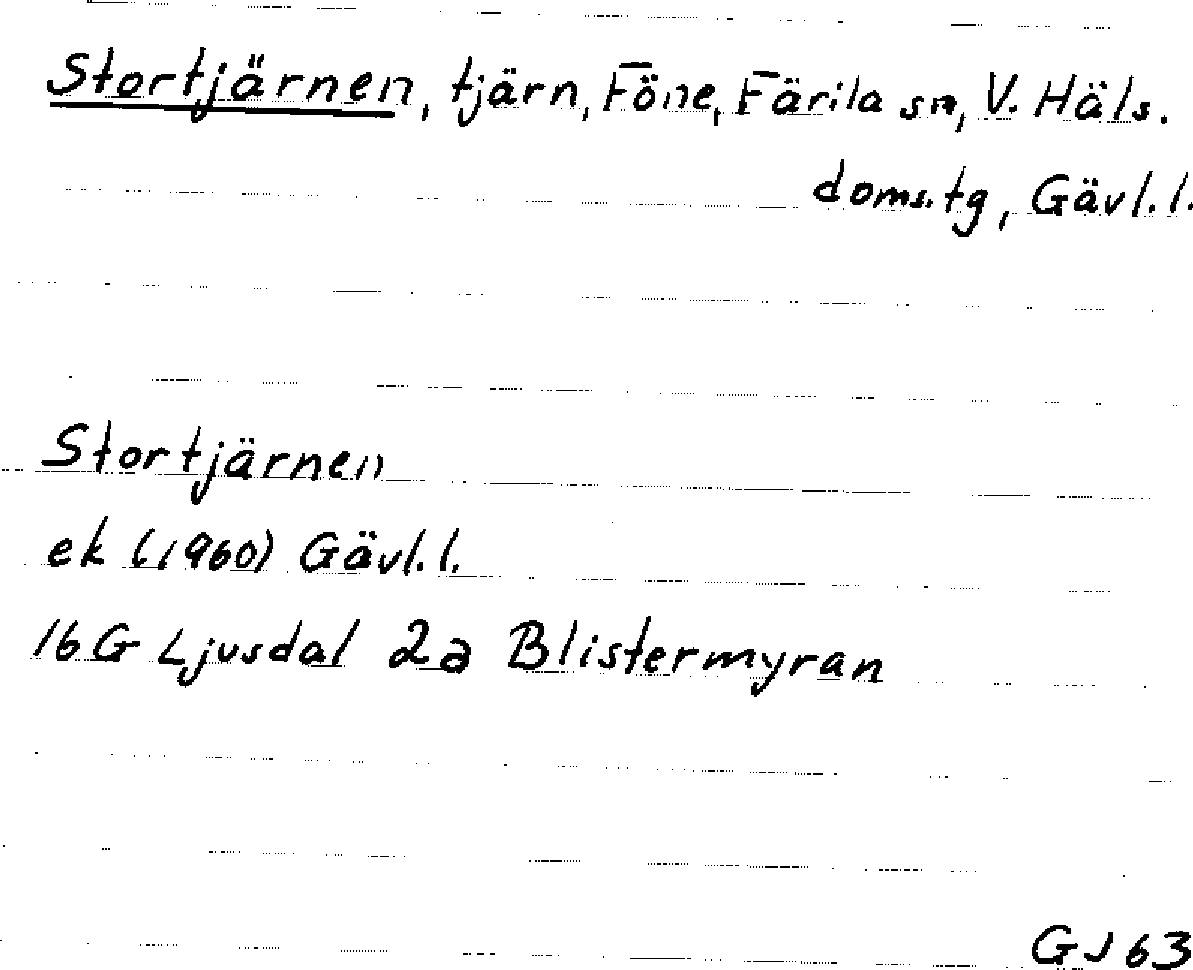 Stortjärnen, tjärn, Föne, Färila sn, V. Häls.
doms.tg, Gävl. l.
Stortjärnen
ek (1960) Gävl. l.
16 G Ljusdal 2a Blistermyran
GJ 63